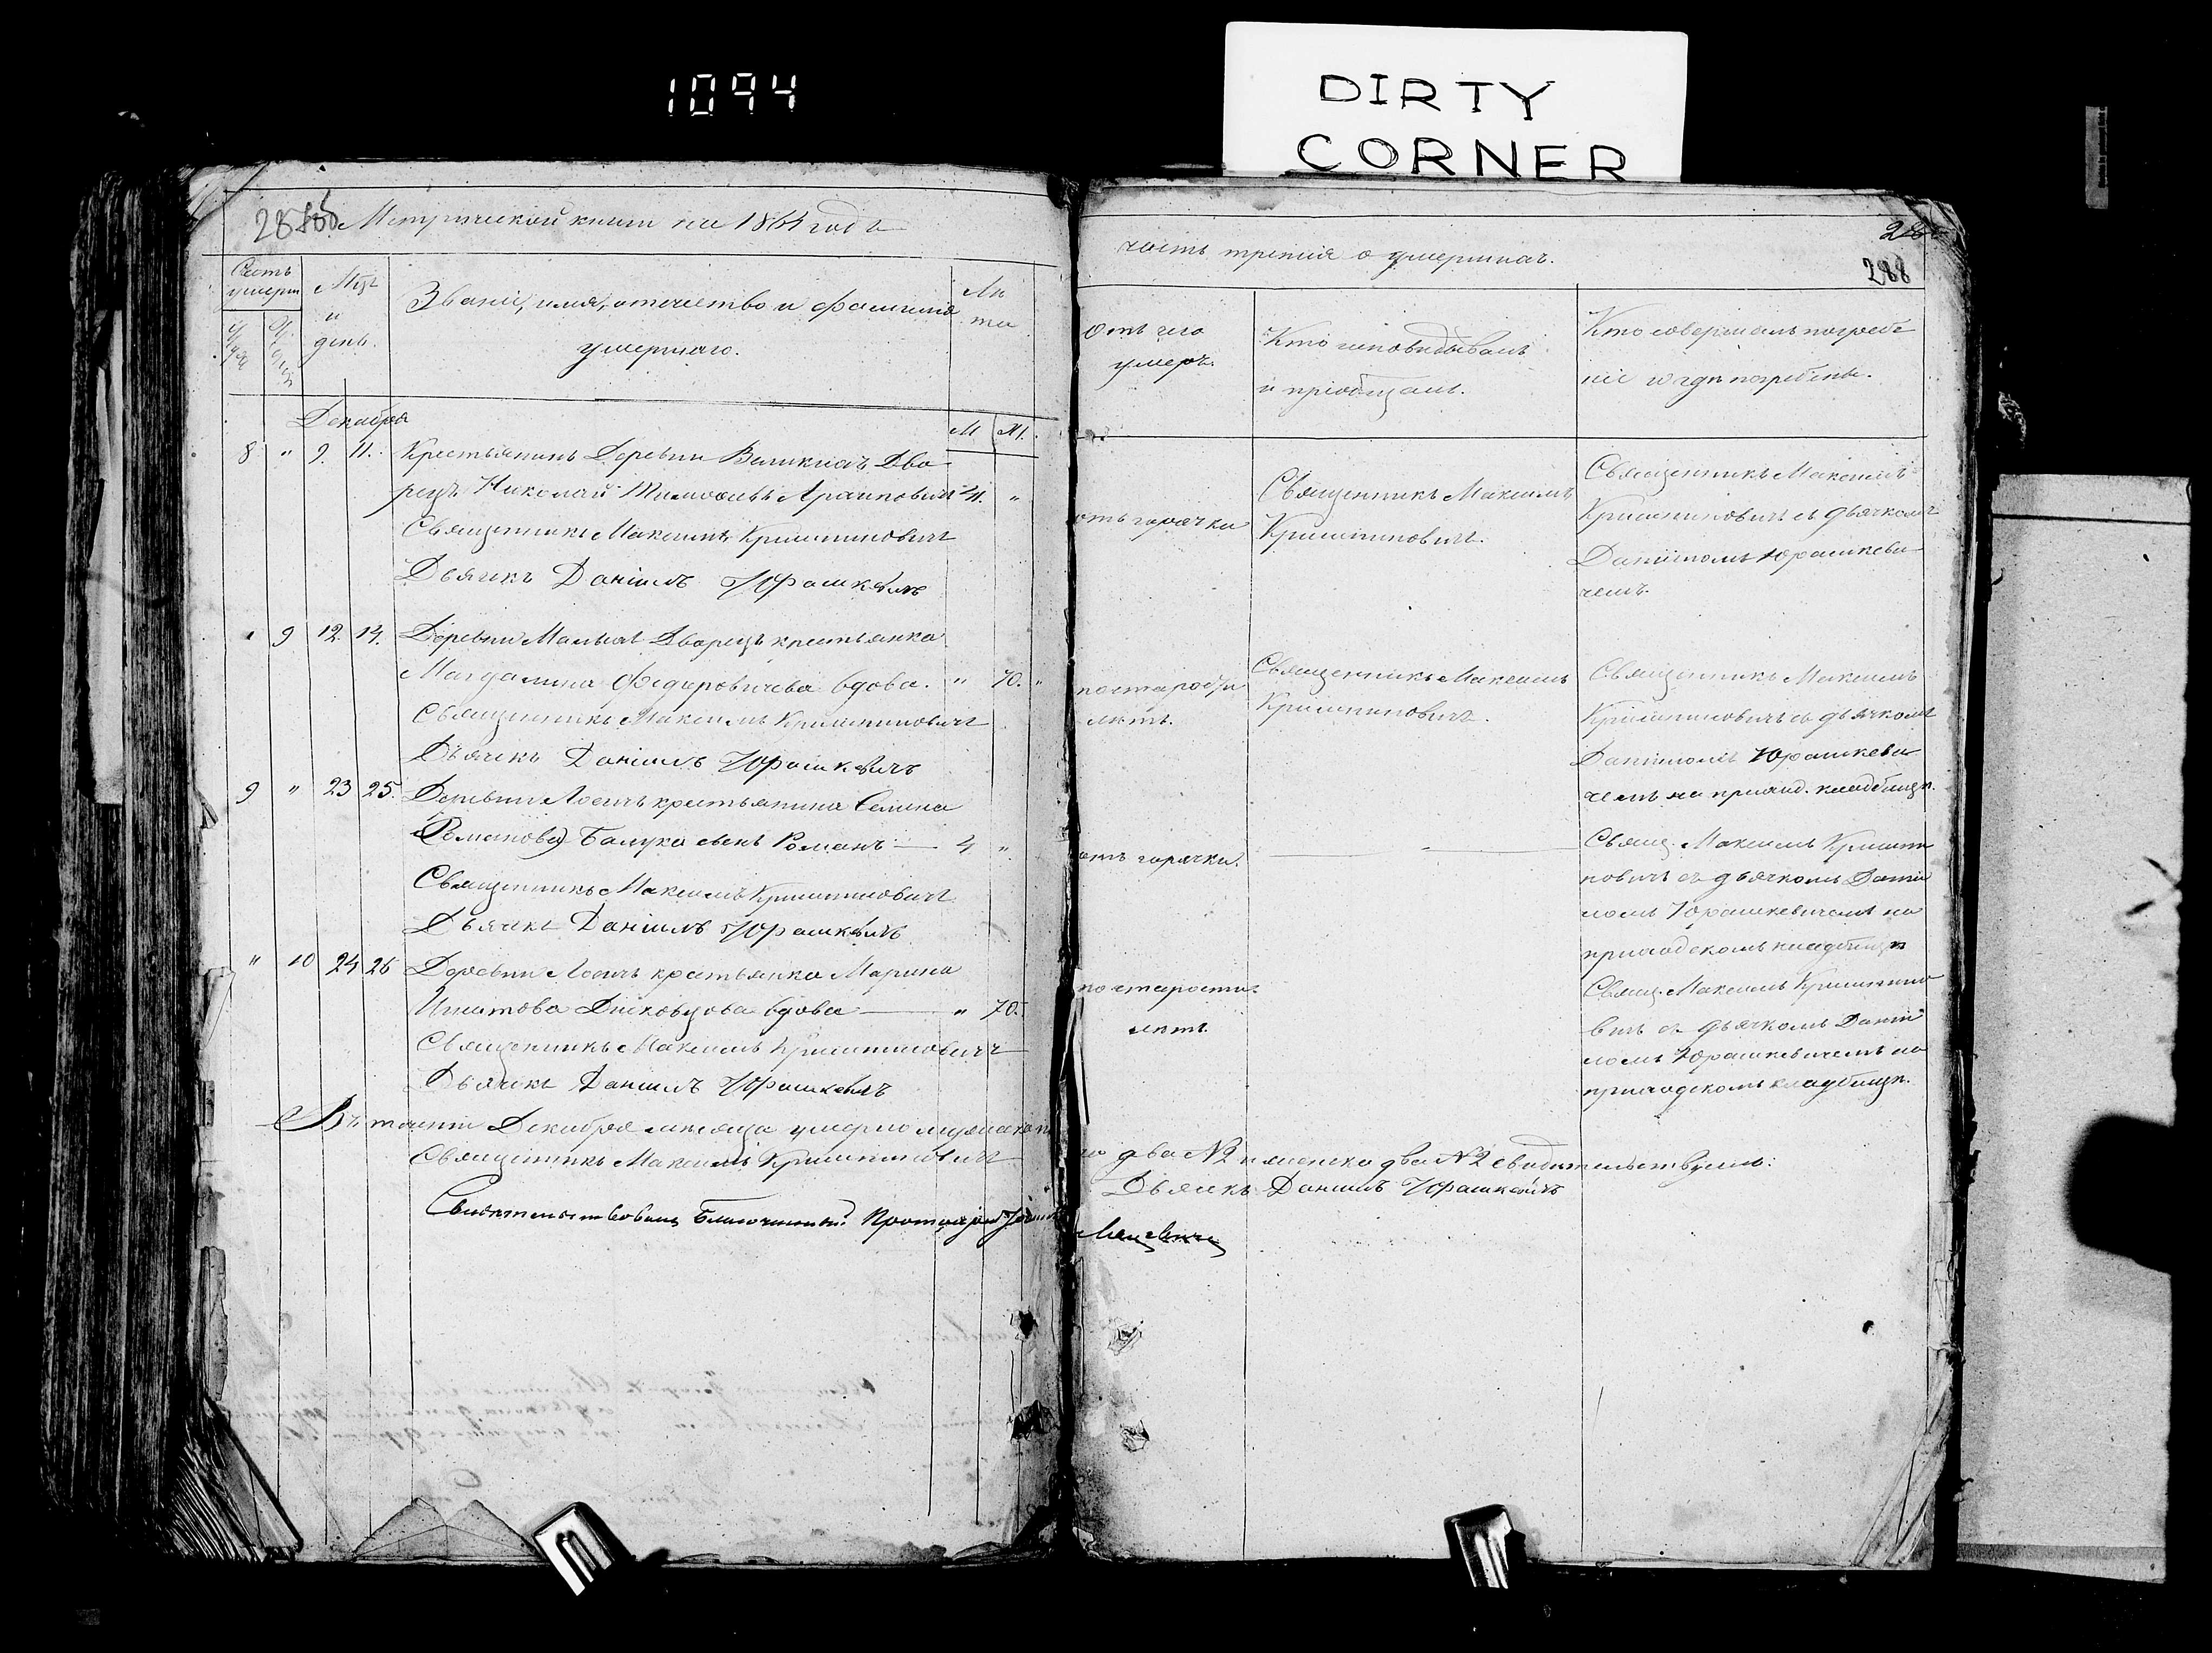 1094
DIRTY
CORNER
Метрической книги на 1864 года
часть третія о умершихъ.
288
Счетъ
умерш
Мцъ
и
день.
Званіе, имя, отечество и фамилія
умершаго.
Лѣ
та
Отъ чего
умеръ.
Кто исповѣдывалъ
и пріобщалъ.
Кто совершалъ погребе
ніе и гдѣ погребены.
Декабря
М
Ж.
8 " 9. 11. Крестьянинъ Деревни Великихъ Дво
рецъ Николай
"
Священникъ Максимъ
Дьячкъ Даніилъ Юрашкевичъ
отъ горячки
Священникъ Максимъ
Священникъ Максимъ
съ дьячкомъ
Даніиломъ Юрашкеви
чемъ.
" 9 12. 14. Деревни Малыхъ Дворецъ крестьянка
Магдалина Федоровичева вдова. " 70.
Священникъ Максимъ
Дьячкъ Даніилъ Юрашкевичъ
лѣтъ.
Священникъ Максимъ
Священникъ Максимъ
съ дьячкомъ
Даніиломъ Юрашкеви
чемъ на приход. кладбищѣ.
9 " 23 25. Деревни Лосичъ крестьянина Семена
Романова Балука сынъ Романъ — 4 "
Священникъ Максимъ
Дьячкъ Даніилъ Юрашкевичъ
отъ горячки.
Свящ. Максимъ
съ дьячкомъ Даніи
ломъ Юрашкевичемъ на
приходскомъ кладбищѣ
" 10 24 26 Деревни Лосичъ крестьянка Марина
Игнатова вдова — " 70.
Священникъ Максимъ
Дьячкъ Даніилъ Юрашкевичъ
по старости
лѣтъ.
Свящ. Максимъ
съ дьячкомъ Даніи
ломъ Юрашкевичемъ на
приходскомъ кладбищѣ.
Въ теченіи Декабря мѣсяца умерло мужеска по
ла два №2 и женска два №2 свидѣтельствуемъ:
Священникъ Максимъ
Дьячкъ Даніилъ Юрашкевичъ
Свидѣтельствовалъ Благочинный Протоіерей